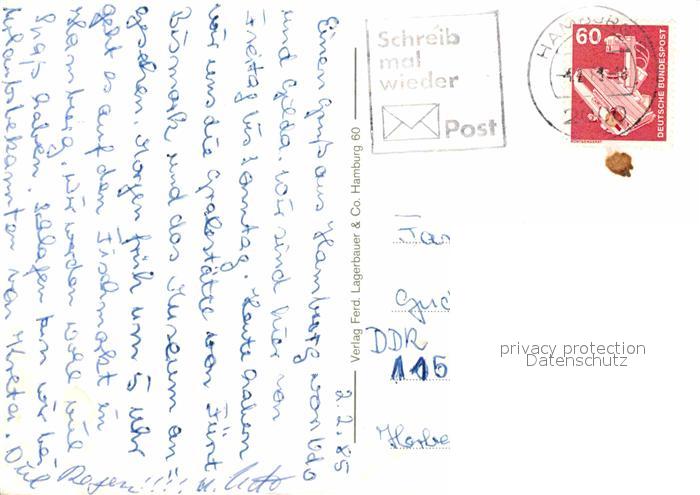 2.2.85
Einen Gruß aus Hamburg von Udo
und Gilda. Wir sind hier von
Freitag bis Sonntag. Heute haben
wir uns die Grabstätte von Fürst
Bismark und das Museum an
gesehen. Morgen früh um 5 Uhr
geht es auf den Fischmarkt in
Hamburg. Wir werden wohl viel
Spaß haben. Schlafen tun wir bei
Urlaubsbekannten von Kreta.
Regen!!!!
Verlag Ferd. Lagerbauer & Co. Hamburg 60
Schreib
mal
wieder
Post
HAMBURG
60
DEUTSCHE BUNDESPOST
DDR
115
privacy protection
Datenschutz